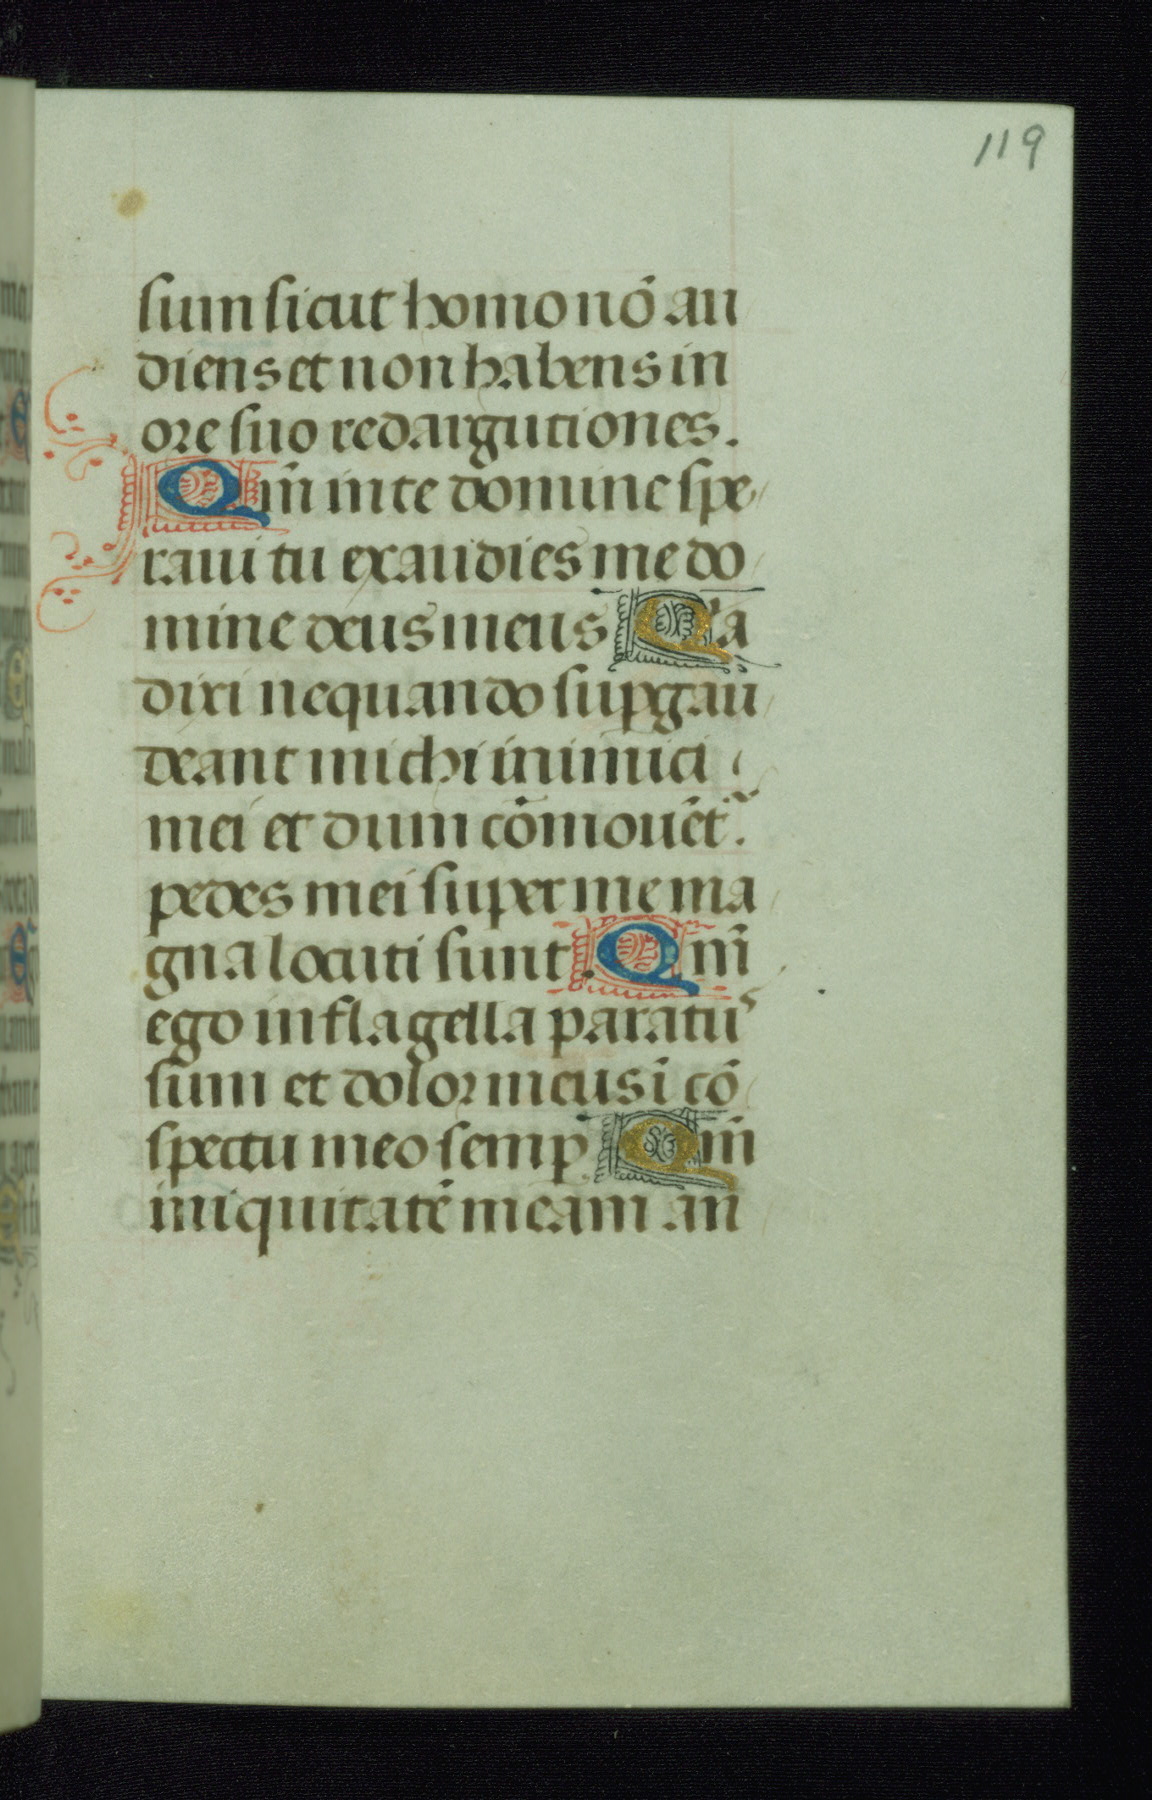 119
sum sicut homo nō au
diens et non habens in
ore suo redargutiones.
Qm̄ in te domine spe
raui tu exaudies me do
mine deus meus Q'a
dixi nequando sup̲gau
deant michi inimici
mei et dum cōmouēt᷑
pedes mei super me ma
gna locuti sunt. Qm̄
ego in flagella paratus
sum et dolor meus ī cō
spectu meo semp̲ Qm̄
iniquitatē meam an